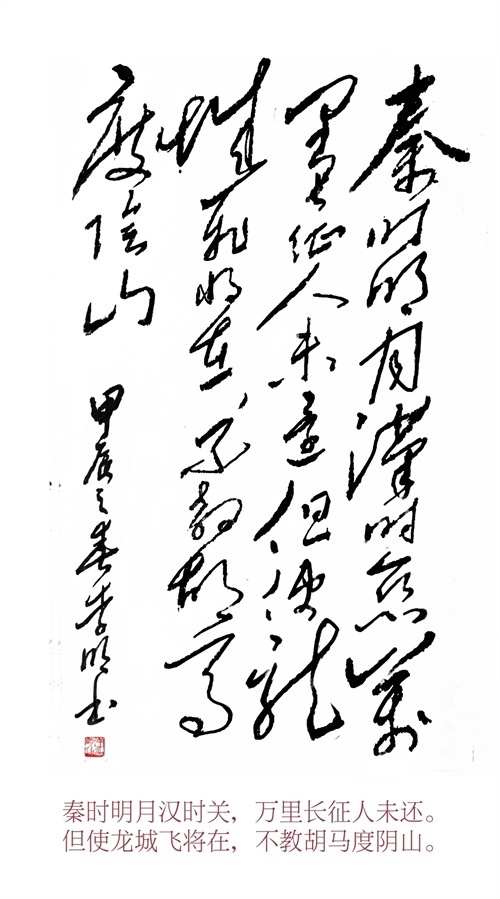 秦时明月漢时关萬
里长征人未還但使龍
城飛将在不教胡馬
度陰山
甲辰之春李明书
秦时明月汉时关，万里长征人未还。
但使龙城飞将在，不教胡马度阴山。